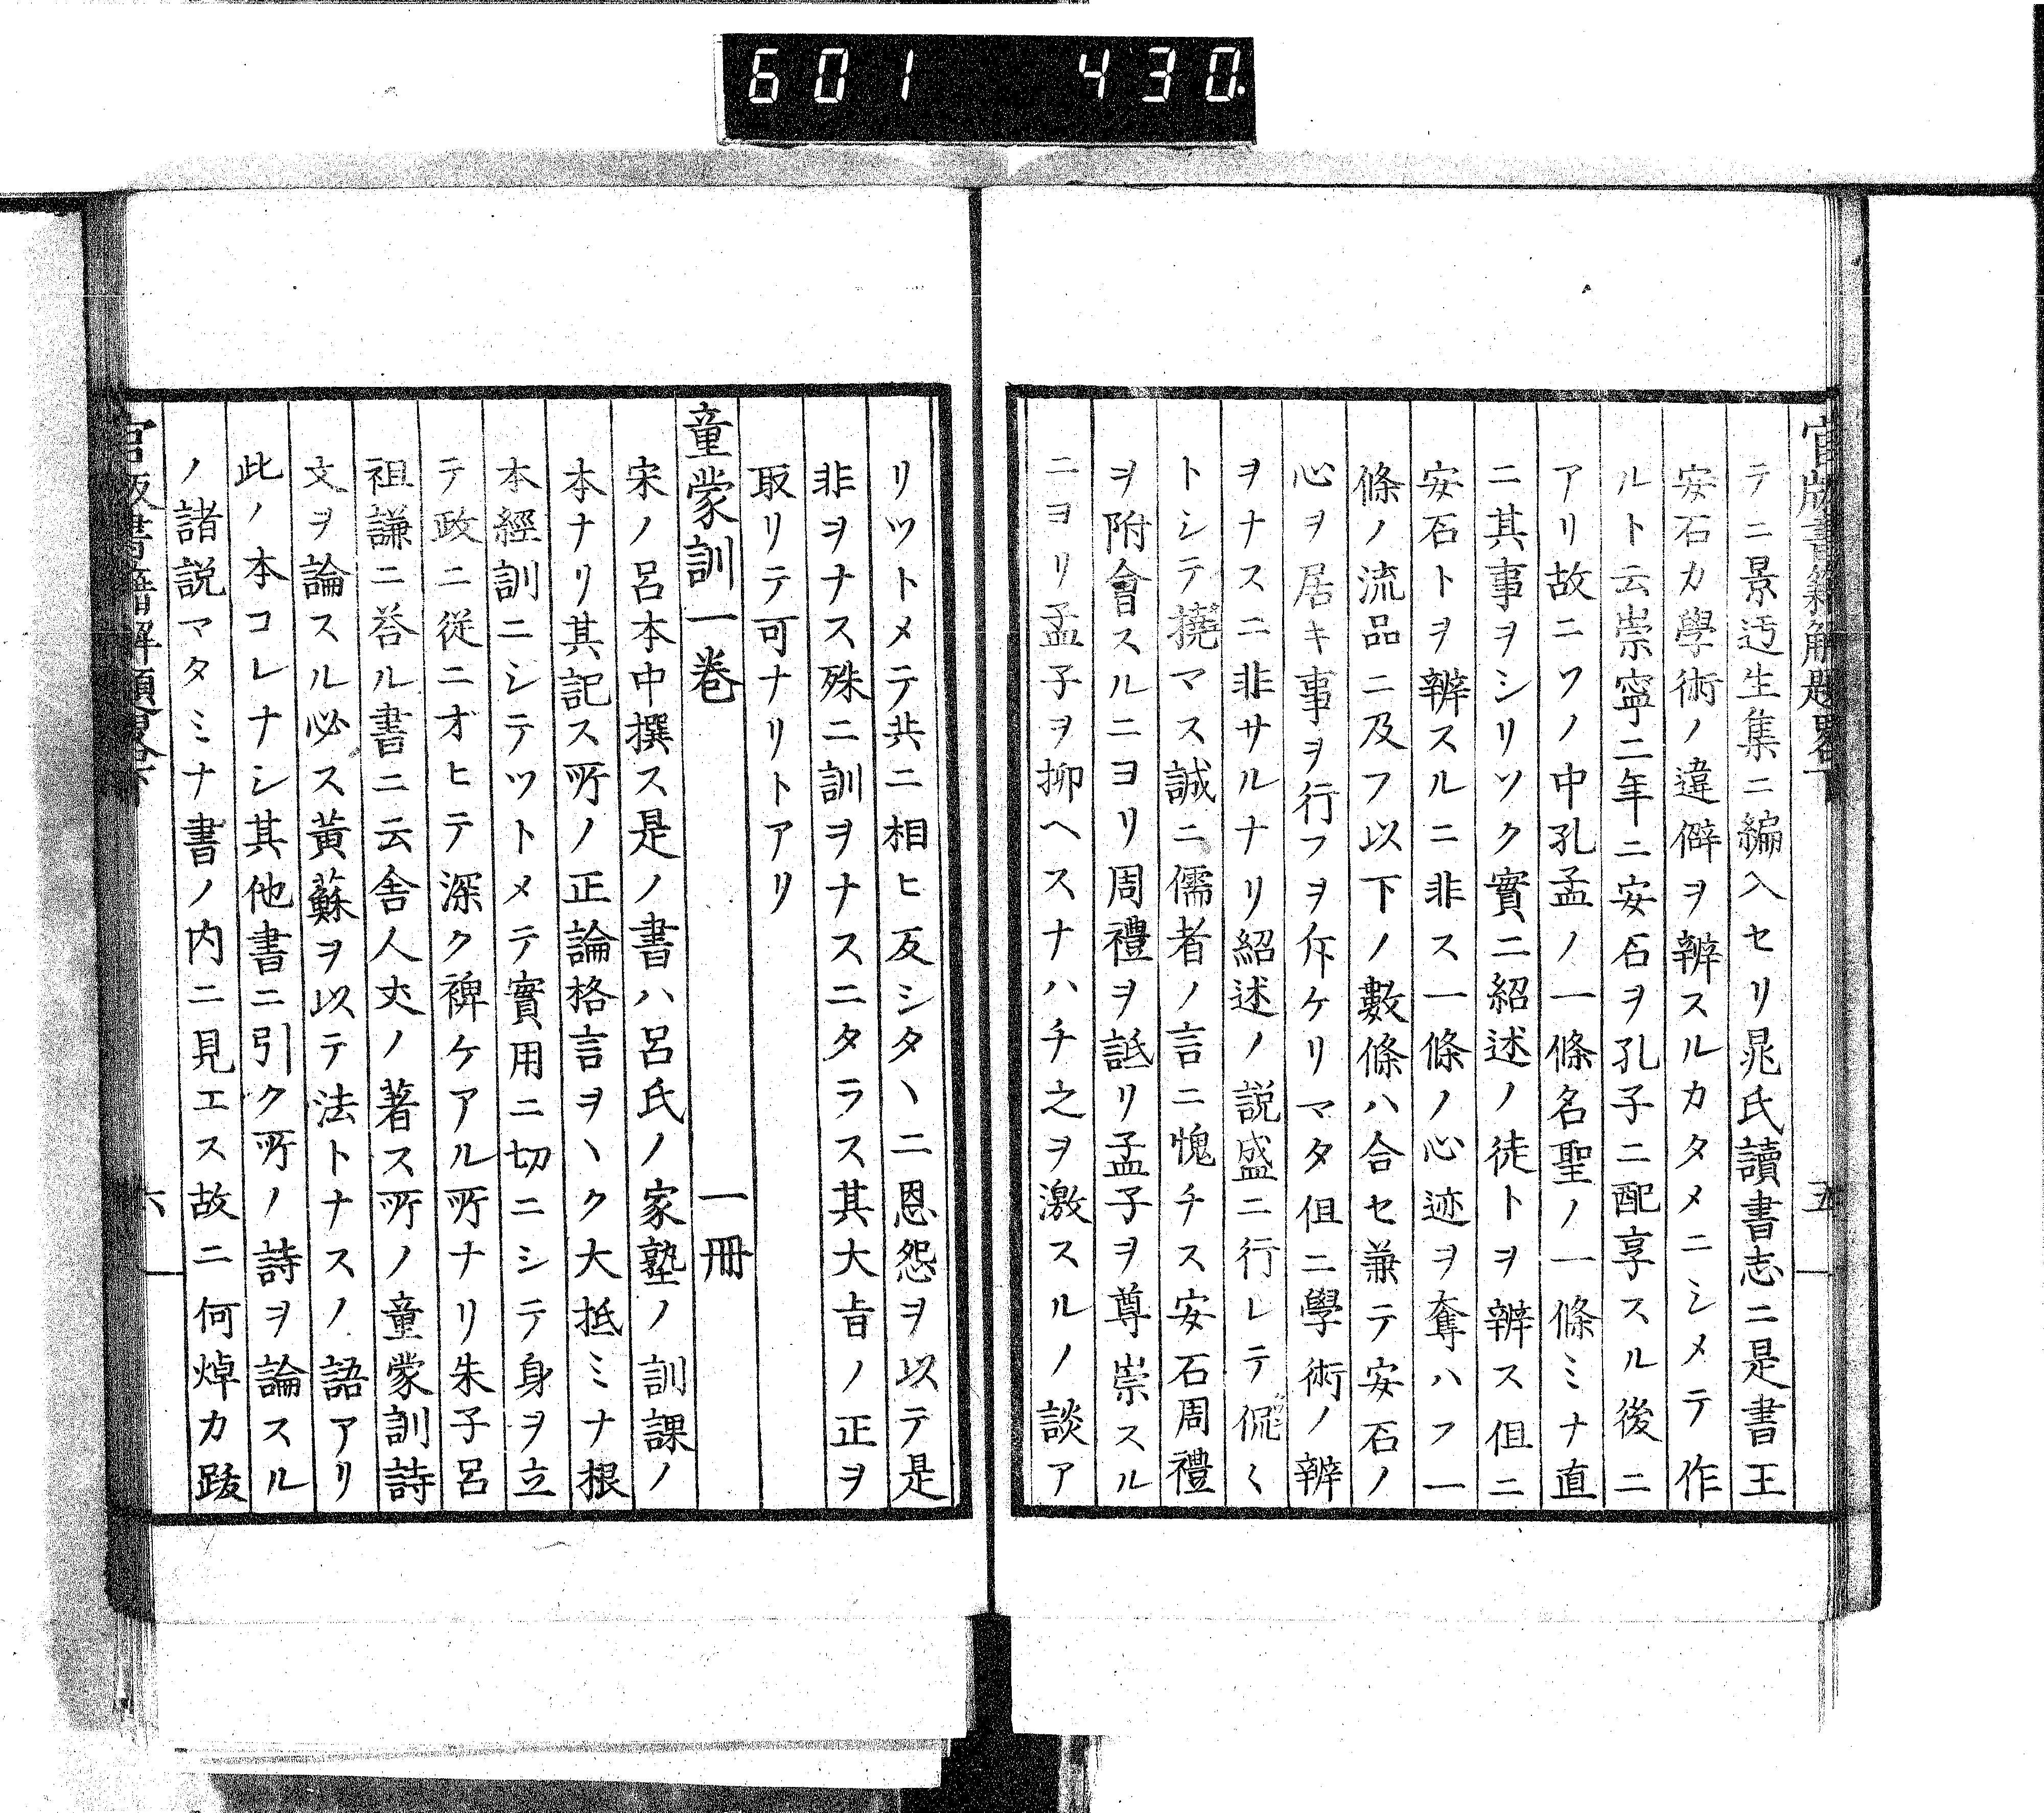 601 430
官版書籍解題畧下
五
テニ景迃生集ニ編入セリ晁氏讀書志ニ是書王
安石カ學術ノ違僻ヲ辨スルカタメニシメテ作
ルト云崇寧二年ニ安石ヲ孔子ニ配享スル後ニ
アリ故ニワノ中孔孟ノ一條名聖ノ一條ミナ直
ニ其事ヲシリツク實ニ紹述ノ徒トヲ辨ス伹ニ
安石トヲ辨スルニ非ス一條ノ心迹ヲ奪ハフ一
條ノ流品ニ及フ以下ノ數條ハ合セ兼テ安石ノ
心ヲ居キ事ヲ行フヲ斥ケリマタ伹ニ學術ノ辨
ヲナスニ非サルナリ紹述ノ説盛ニ行レテ侃〱
トシテ撓マス誠ニ儒者ノ言ニ愧チス安石周禮
ヲ附會スルニヨリ周禮ヲ詆リ孟子ヲ尊崇スル
ニヨリ孟子ヲ抑ヘスナハチ之ヲ激スルノ談ア
リツトメテ共ニ相ヒ反シタヽニ恩怨ヲ以テ是
非ヲナス殊ニ訓ヲナスニタラス其大㫖ノ正ヲ
取リテ可ナリトアリ
童蒙訓一巻 一冊
宋ノ呂本中撰ス是ノ書ハ呂氏ノ家塾ノ訓課ノ
本ナリ其記ス所ノ正論格言ヲヽク大抵ミナ根
本經訓ニシテツトメテ實用ニ切ニシテ身ヲ立
テ政ニ從ニオヒテ深ク裨ケアル所ナリ朱子呂
祖謙ニ荅ル書ニ云舎人丈ノ著ス所ノ童蒙訓詩
文ヲ論スル必ス黄蘇ヲ以テ法トナスノ語アリ
此ノ本コレナシ其他書ニ引ク所ノ詩ヲ論スル
ノ諸説マタミナ書ノ内ニ見エス故ニ何焯カ跋
官版書籍解題畧下
六